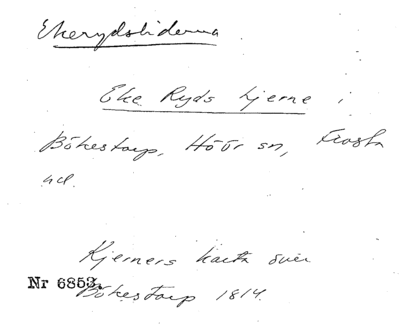 Ekerydsliderna
Eke Ryds hjerne i
Bökestorp, Höör sn, Frosta
hd.
Kjerners karta över
Nr 6853.
Bökestorp 1814.